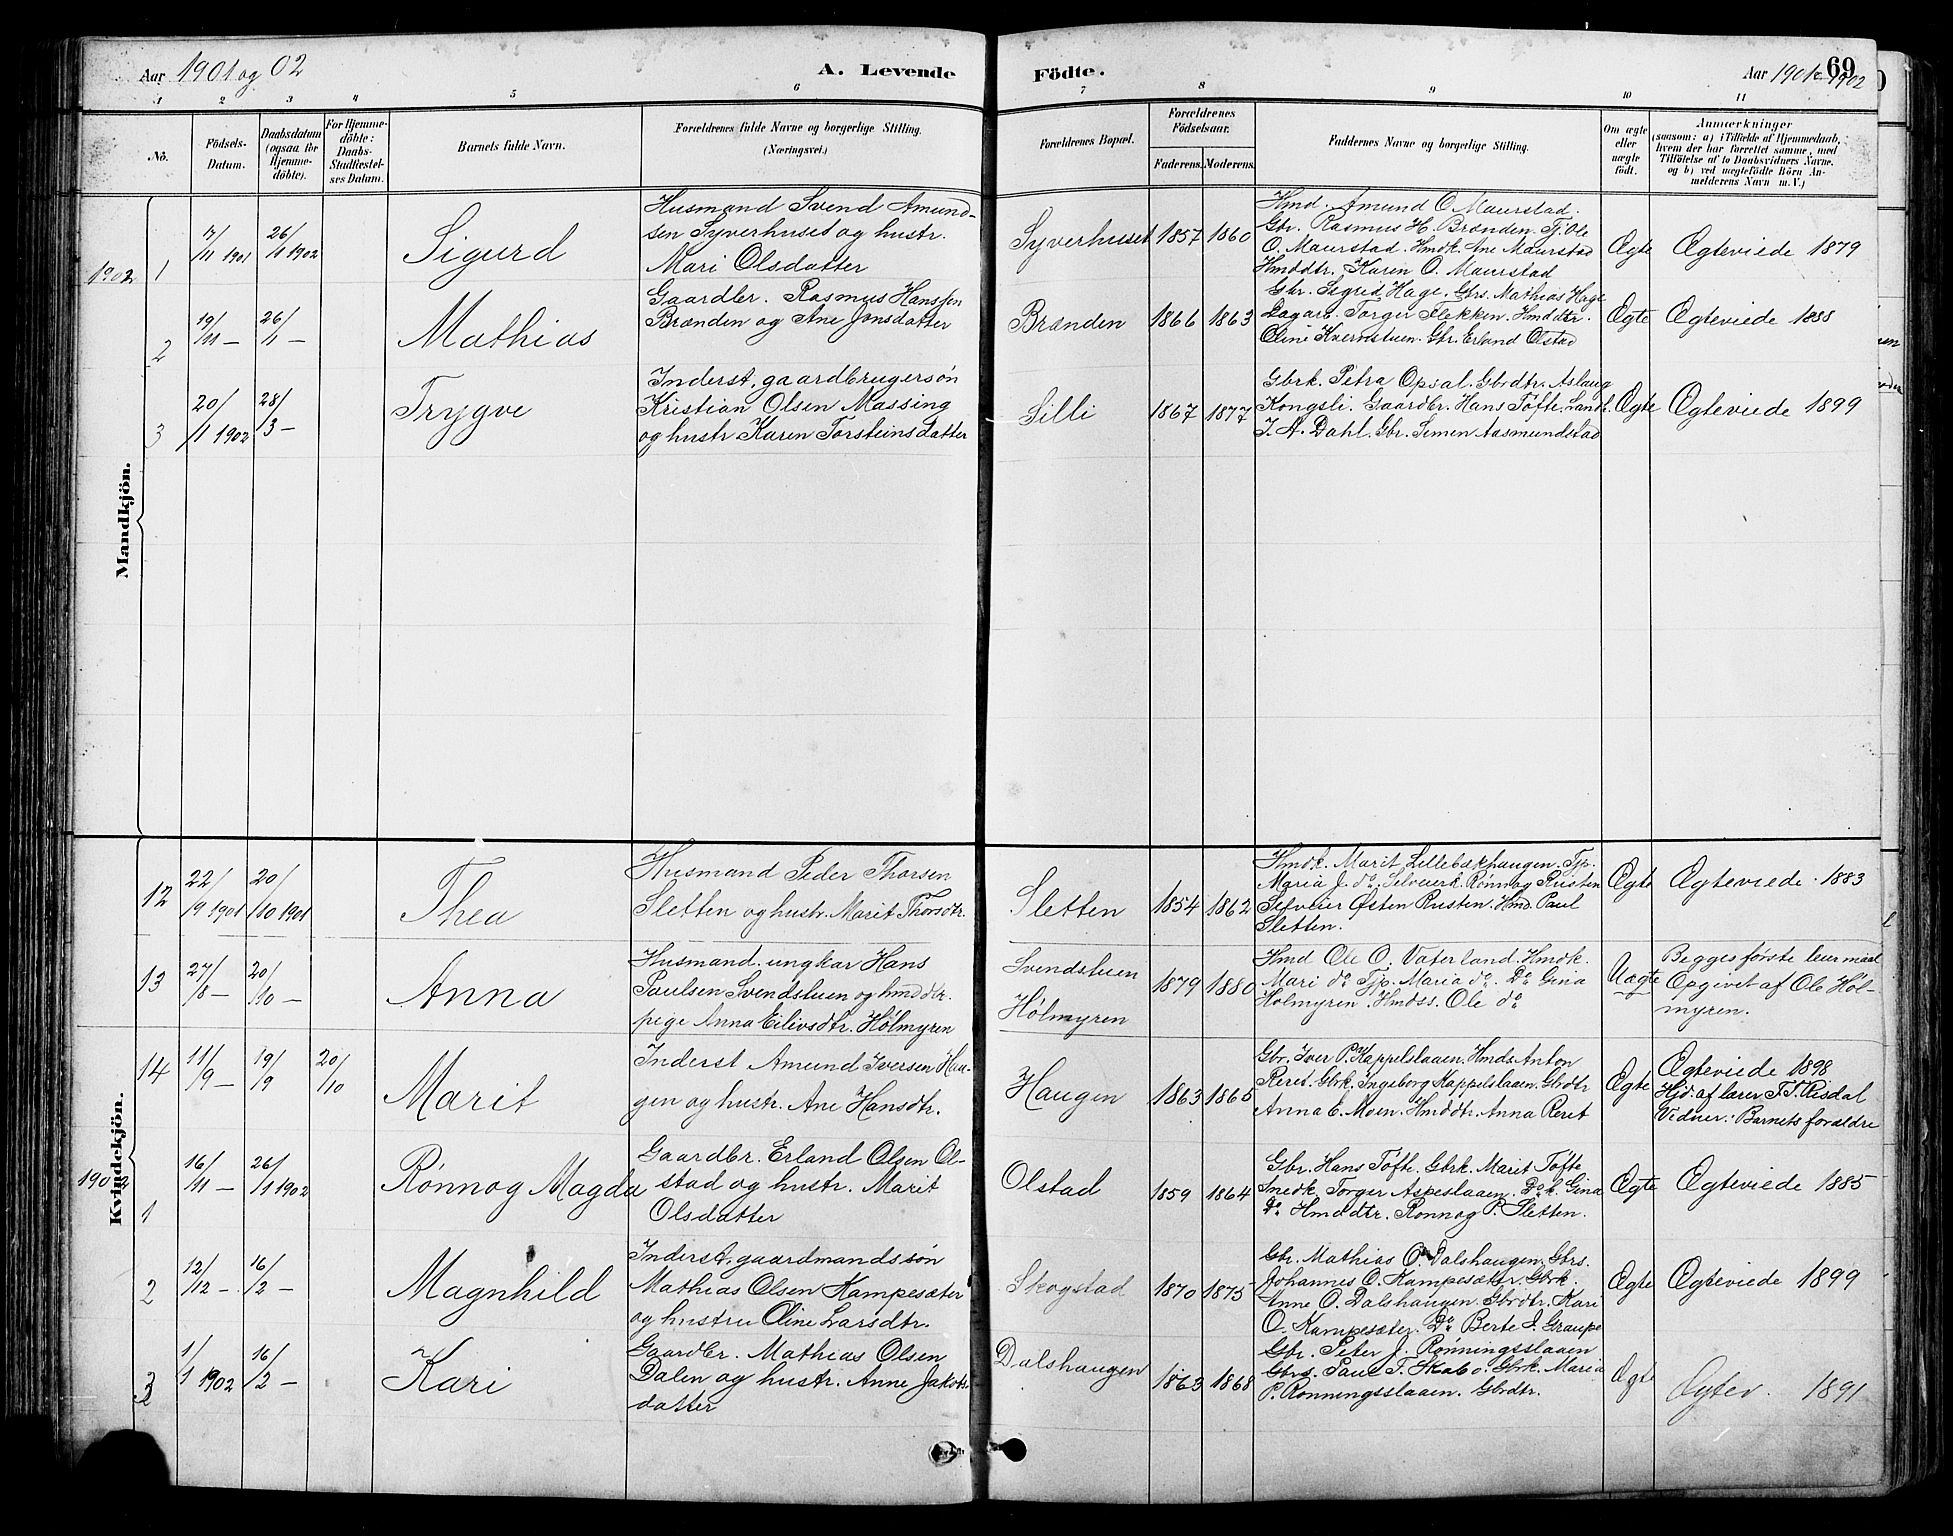 Aar 1901 og 02
A. Levende Födte.
Aar 1901 & 1902
69
1 2 3 4 5 6 7 8 9 10 11
No.
Födsels-Datum.
Daabsdatum (ogsaa for Hjemme-döbte).
For Hjemme-döbte: Daabs-Stadfæstel-ses Datum.
Barnets fulde Navn.
Forældrenes fulde Navne og borgerlige Stilling.
(Næringsvei.)
Forældrenes Bopæl.
Forældrenes Födselsaar.
Faderens. Moderens.
Faddernes Navne og borgerlige Stilling.
Om ægte eller uægte födt.
Anmærkninger
(saasom: a) i Tilfælde af Hjemmedaab,
hvem der har forrettet samme, med
Tilföielse af to Daabsvidners Navne,
og b) ved uægtefödte Börn An-
melderens Navn m. V.)
Mandkjön.
1902
1 7/11 1901 26/1 1902 Sigurd
Husmand Svend Amund-
sen Syverhuset og hustr.
Mari Olsdatter
Syverhuset 1857 1860
Hmd. Amund O Maurstad.
Gbr. Rasmus H. Brænden. Tj. Ole
O. Maurstad. Hmdk. Ane Maurstad
Hmddtr. Karen O. Maurstad
Ægte Ægteviede 1879
2 19/11 — 26/1 — Mathias
Gaardbr. Rasmus Hanssen
Brænden og Ane Jonsdatter
Brænden 1866 1863
Gbr. Sigrid Hage. Gbrs. Mathias Hage
Lagarb. Torger Flekken. Hmddtr.
Oline Kvernstuen. Gbr. Erland Olstad
Ægte Ægteviede 1888
3 20/1 1902 28/3 — Trygve
Inderst, gaardbrugersøn
Kristian Olsen Massing
og hustr Karen Torsteinsdatter
Silli 1867 1877
Gbrk. Petra Opsal. Gbrdtr. Aslaug
Kongsli. Gaardbr. Hans Tofte. Landh.
J. A. Dahl. Gbr. Simen Aasmundstad
Ægte Ægteviede 1899
Kvindekjön.
12 22/9 1901 20/10 1901 Thea
Husmand Peder Thorsen
Sletten og hustr. Marit Thorsdtr.
Sletten 1854 1862
Hmdk. Marit Lillebækhaugen. Tjp.
Maria J. do. Selveierk. Rønnog Rusten
Selveier Østen Rusten. Hmd. Paul
Sletten.
Ægte Ægteviede 1883
13 27/8 — 20/10 — Anna
Husmand. ungkar Hans
Paulsen Svendstuen og hmddtr.
pige Anna Eilivsdtr. Hølmyren
Svendstuen
Hølmyren
1879 1880
Hmd Ole O. Vaterland. Hmdk.
Mari do Tjp. Maria do. Do Gina
Holmyren. Hmdss. Ole do
Uægte
Begges første leiermaal
Opgivet af Ole Høl-
myren.
14 11/9 — 19/9 20/10 Marit
Inderst Amund Iversen Hau-
gen og hustr. Ane Hansdtr.
Haugen 1863 1865
Gbr. Iver P. Kappelslaaen. Hmds. Anton
Reret. Gbrk. Ingeborg Kappelslaaen. Gbrdtr
Anna E. Moen. Hmddtr. Anna Reret
Ægte
Ægteviede 1898
Hjd. af lærer T. T. Risdal
Vidner: Barnets forældre
1902
1 16/11 — 26/1 1902 Rønnog Magda
Gaardbr. Erland Olsen Ol-
stad og hustr. Marit
Olsdatter
Olstad 1859 1864
Gbr. Hans Tofte. Gbrk. Marit Tofte
Snedk. Torger Aspeslaaen. Do k. Gina
Do. Hmddtr. Rønnog P. Sletten.
Ægte Ægteviede 1885
2 12/12 — 16/2 — Magnhild
Inderst, gaardmandssøn
Mathias Olsen Kampesæter
og hustru Oline Larsdtr.
Skogstad 1870 1875
Gbr. Mathias O. Dalshaugen. Gbrs.
Johannes O. Kampesæter. Gbrk.
Anne O. Dalshaugen. Gbrdtr. Kari
O. Kampesæter. Do Berte I. Graupe
Ægte Ægteviede 1899
3 1/1 1902 16/2 — Kari
Gaardbr. Mathias Olsen
Dalen og hustr. Anne Jakobs
datter
Dalshaugen 1863 1868
Gbr. Peter J. Rønningsslaaen
Gbrs. Paul T. Skabo. Gbrk. Maria
P. Rønningsslaaen. Gbrdtr.
Ægte Ægtev. 1891